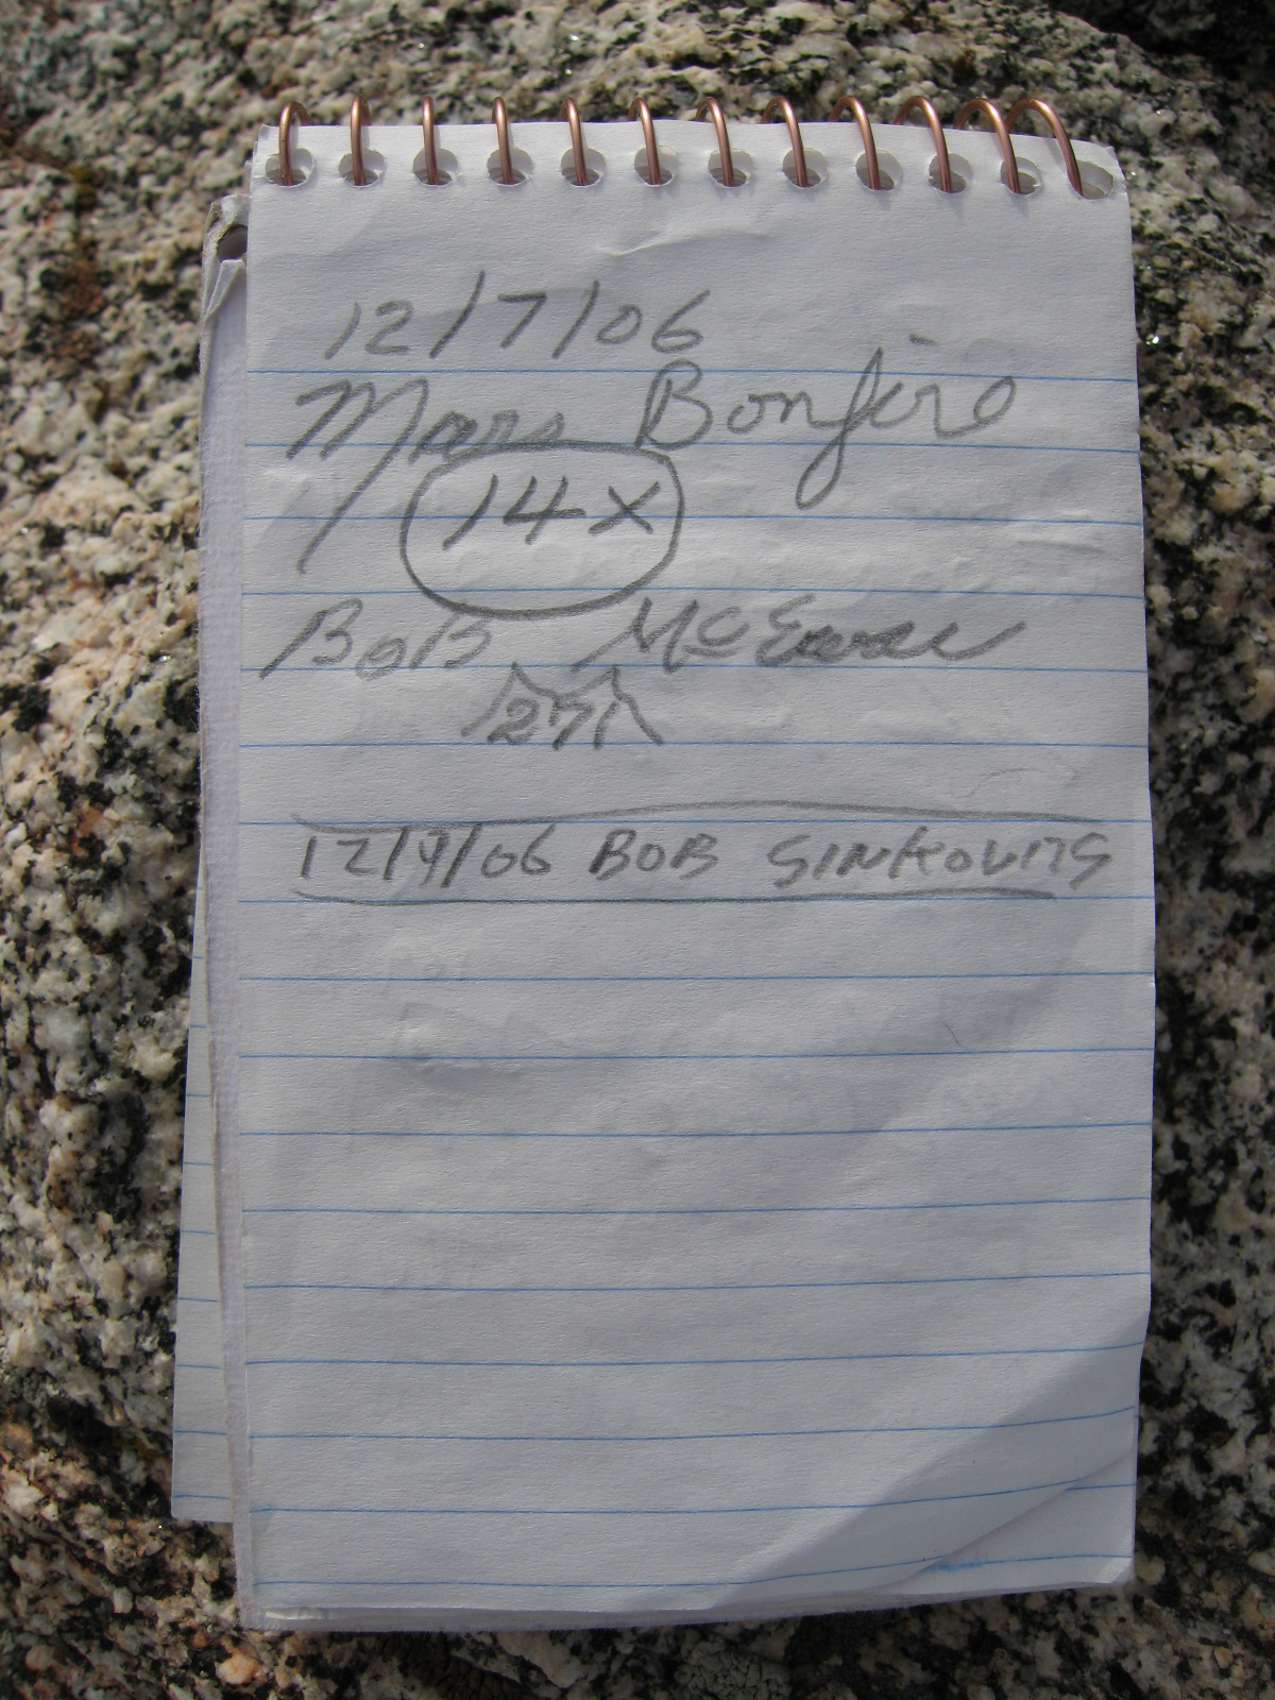 12/7/06
Mars Bonfire
14x
BoB McEwen
27
12/9/06 BOB SINKOVITS